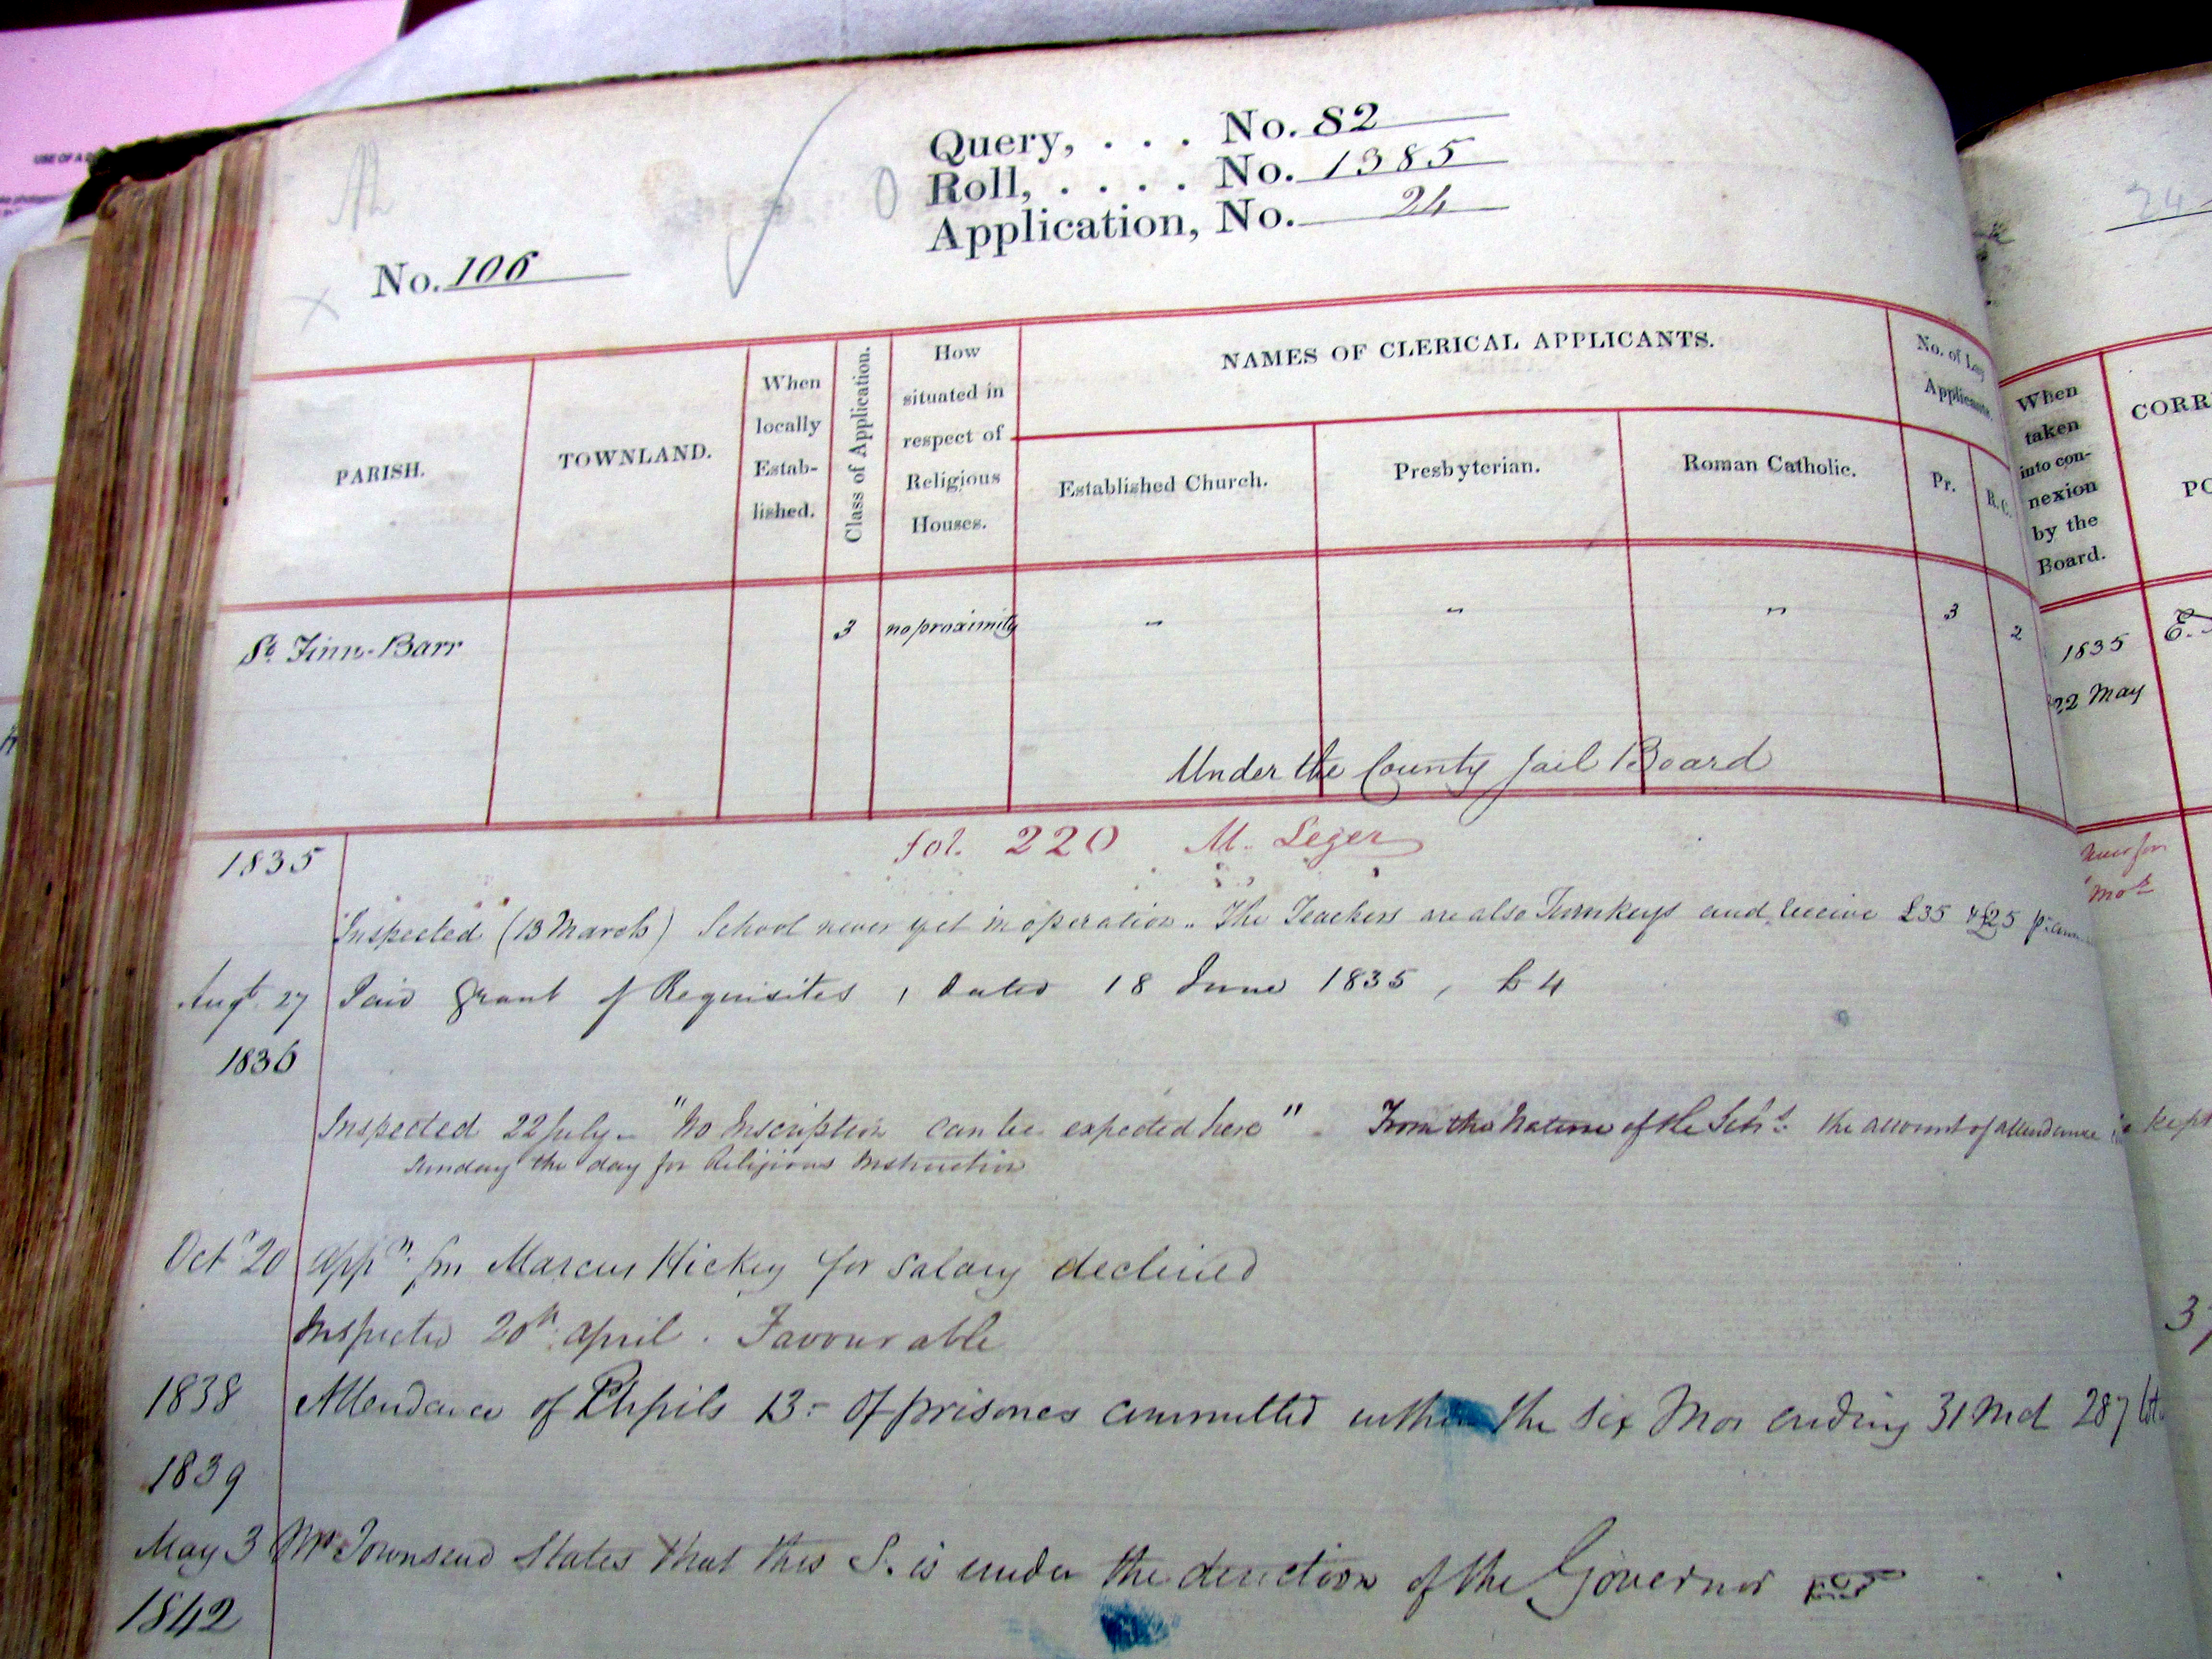 USE OF A
Query, . . . No. 82
Roll, . . . . No. 1385
Application, No. 24
No. 106
PARISH.
TOWNLAND.
When locally Estab-lished.
Class of Application.
How situated in respect of Religious Houses.
NAMES OF CLERICAL APPLICANTS.
Established Church.
Presbyterian.
Roman Catholic.
No. of Lay Applicants.
Pr.
R.C.
St. Finn-Barr
3
no proximity
"
"
"
3
2
Under the County Jail Board
fol. 220 M. Leger
1835
Inspected (13 March) School never yet in operation. The Teachers are also Turnkeys and receive £35 & £25 pr. ann
Augt. 27 Paid Grant of Requisites, dated 18 June 1835, £4
1836
Inspected 22 July. "No Inscription can be expected here". From the Nature of the Schl. the account of attendance is kept
Sunday the day for Religious Instruction
Octr 20 appn. fm Marcus Hickey for Salary declined
Inspected 20th. april. Favourable
1838 Attendance of Pupils 13 - Of prisoners committed within the six Mos ending 31 Md 287
1839
May 3 Mr Townsend States that this S. is under the direction of the Governor
1842
24
When taken into con-nexion by the Board.
CORR
PO
1835
22 May
E.
Mor
3